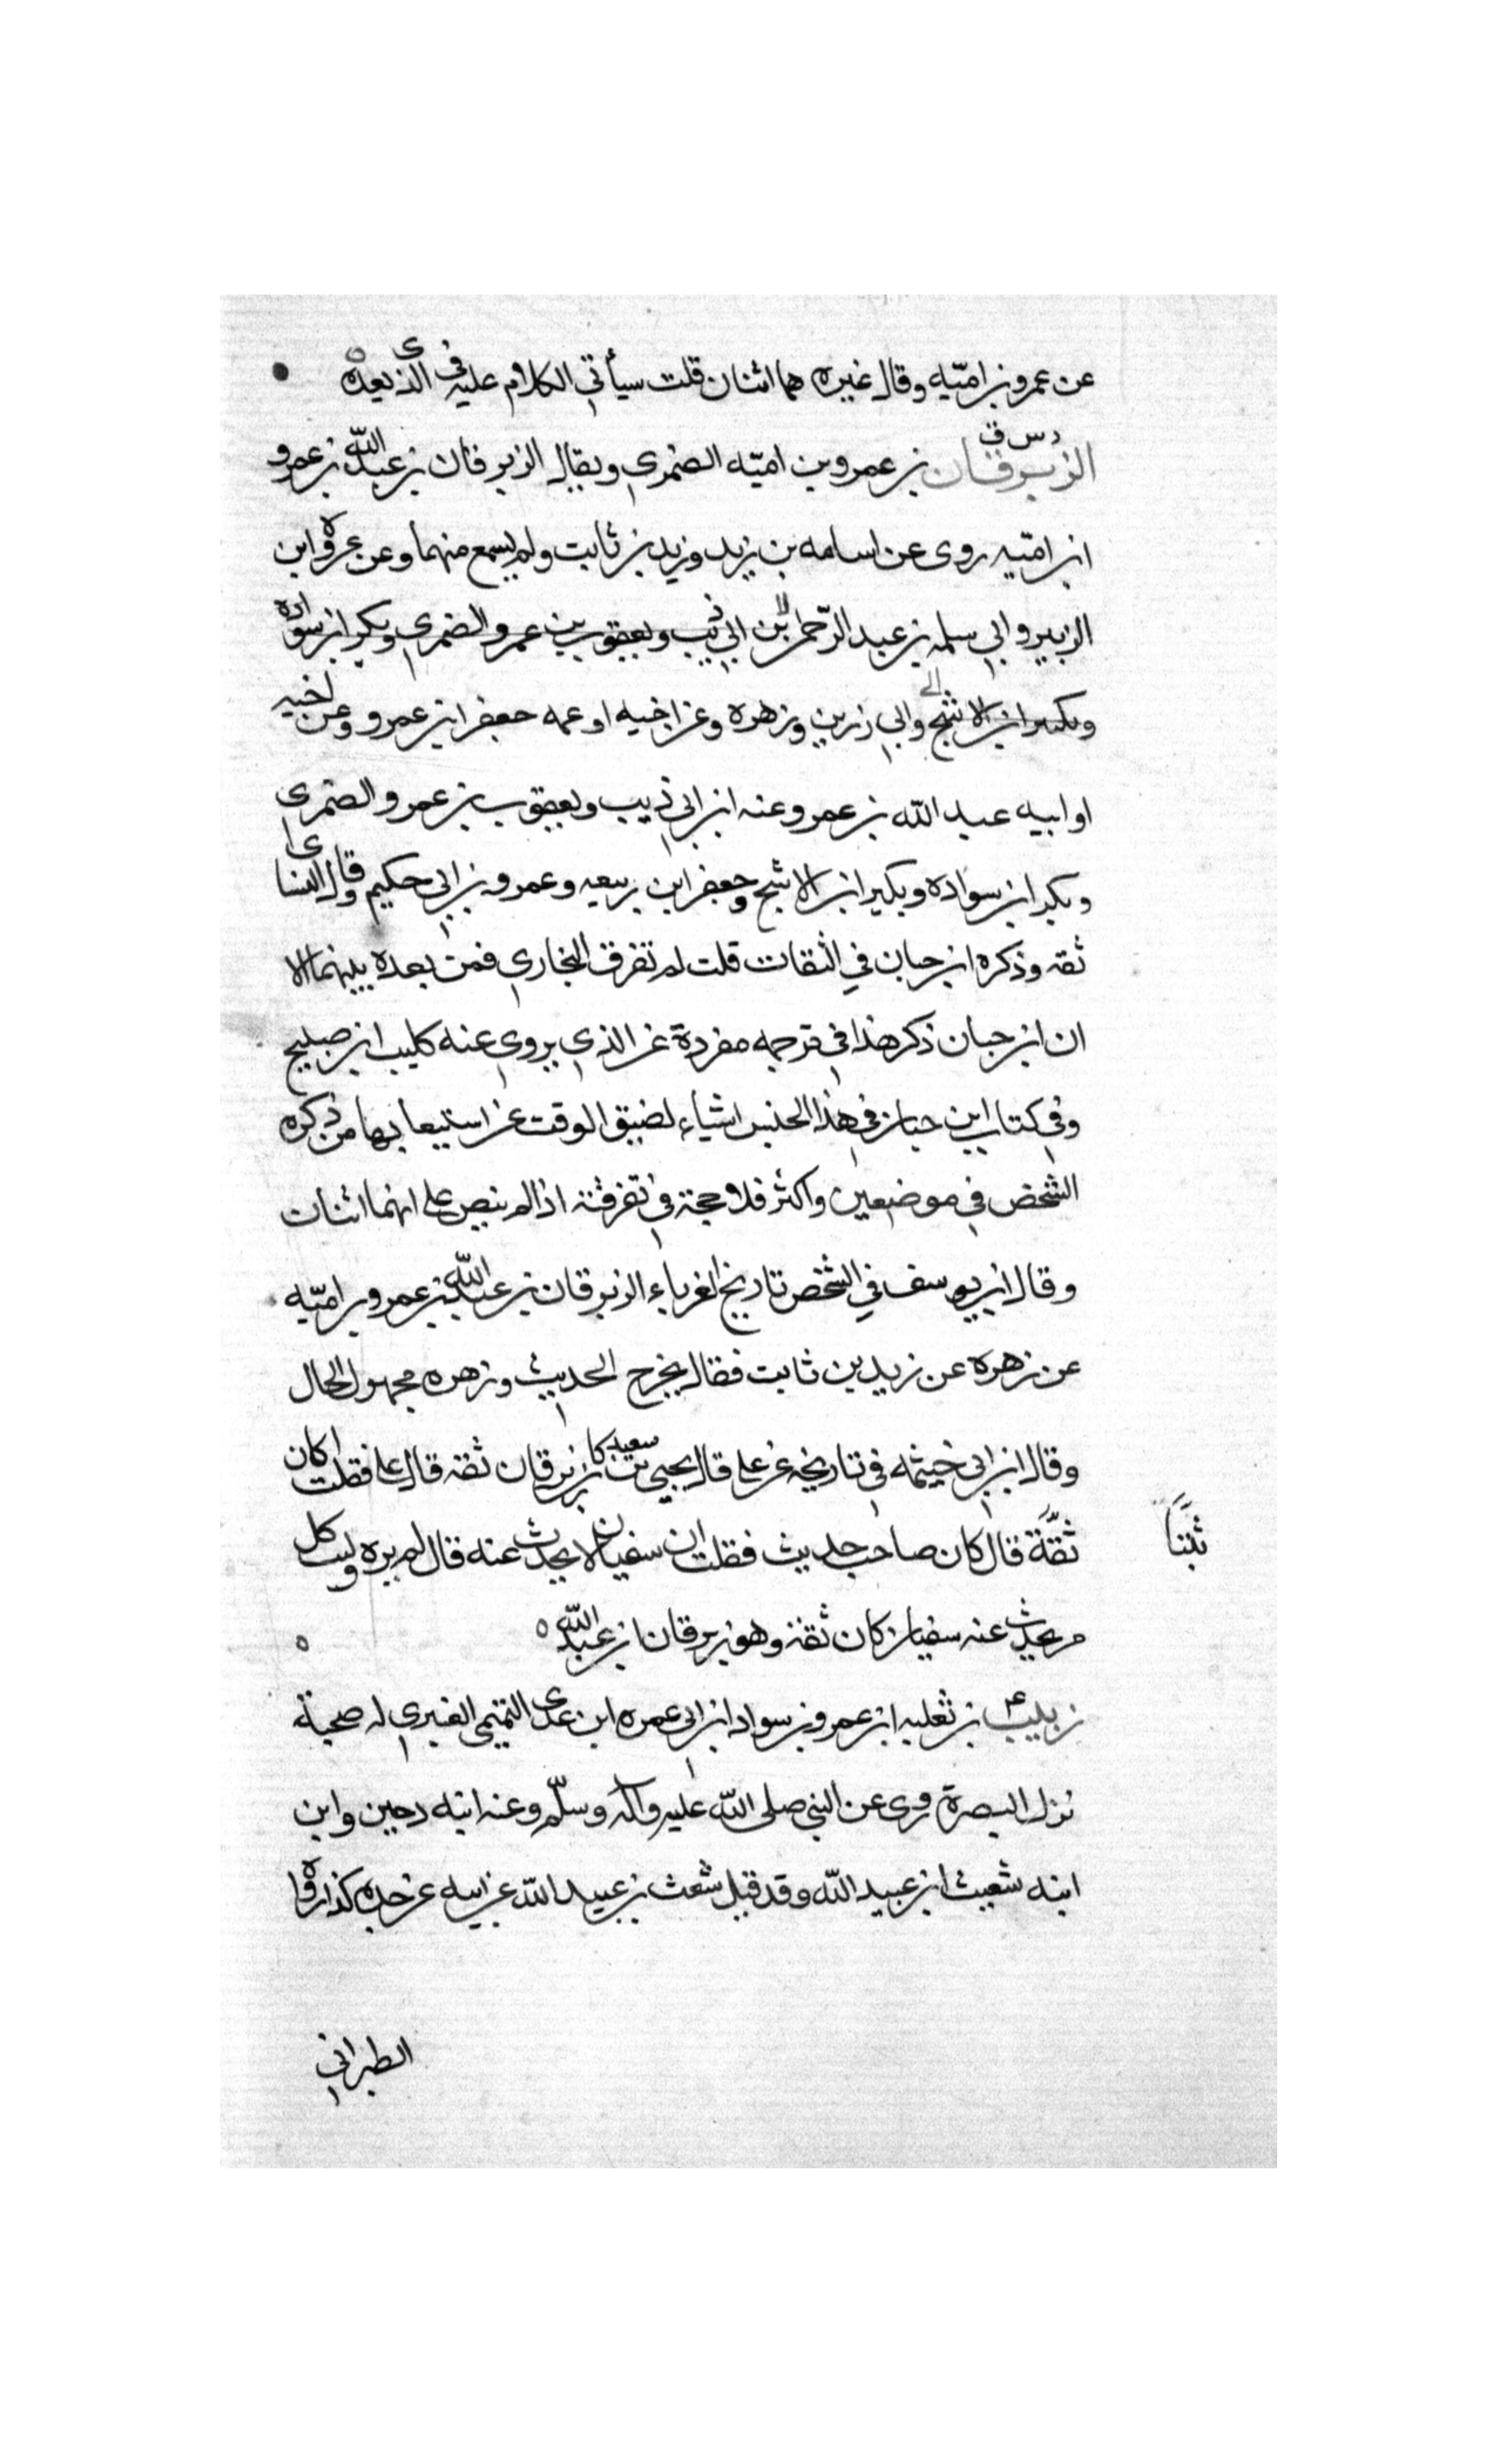 عن عمرو بن اميّه وقال غيره هما اثنان قلت سيأتي الكلام عليه في الذي بعده
د س ق
الزبرقان بن عمرو بن اميّه الضمري ويقال الزبرقان بن عبد الله بن عمرو
ابن اميّه روى عن اسامه بن زيد وزيد بن ثابت ولم يسمع منهما وعن عروة ابن
الزبير وابي سلمه بن عبد الرّحمن بن ابي ذيب ويعقوب بن عمرو الضمري وبكر ابن سواده
وبكير ابن الاشج وابي زرين وزهره وعن اخيه او عمه جعفر ابن عمرو وعن اخيه
او ابيه عبد الله بن عمرو وعنه ابن ابي ذيب ويعقوب بن عمرو الضمري
وبكر ابن سواده وبكير ابن الاشج وجعفر ابن ربيعه وعمرو بن ابي حكيم وقال النساى
ثقه وذكره ابن حبان في الثقات قلت لم تفرق البخاري فمن بعده بينهما الا
ان ابن حبان ذكر هذا في ترجمه مفردة عن الذي يروي عنه كليب ابن صبيح
وفي كتاب ابن حبان في هذا الجنس اشياء لضيق الوقت عن استيعابها من ذكره
الشخص في موضعين واكثر فلا حجة في تفرقته اذا لم ينص على انهما اثنان
وقال ابن يوسف في الشخص تاريخ الغرباء الزبرقان بن عبد الله بن عمرو بن اميّه
عن زهرة عن زيد بن ثابت فقال يخرج الحديث وزهره مجهول الحال
وقال ابن ابي خيثمه في تاريخه عن علي قال يحيى بن سعيد كان زبرقان ثقه قال علي فقلت اكان
ثبتاً
ثقّة قال كان صاحب حديث فقلت ان سفيان لا يحدث عنه قال لم يره وليت كل
من يحدث عنه سفيان كان ثقة وهو زبرقان ابن عبد الله
زبيب بن ثعلبه ابن عمرو بن سواد ابن ابي عمره ابن عدى التميمى العنبري له صحبة
نزل البصرة وروى عن النبي صلى الله عليه وآله وسلّم وعنه ابنه دحين وابن
ابنه شعيث ابن عبيد الله وقد قيل شعث بن عبيد الله عن ابيه عن جده كذا رواه
الطبراني